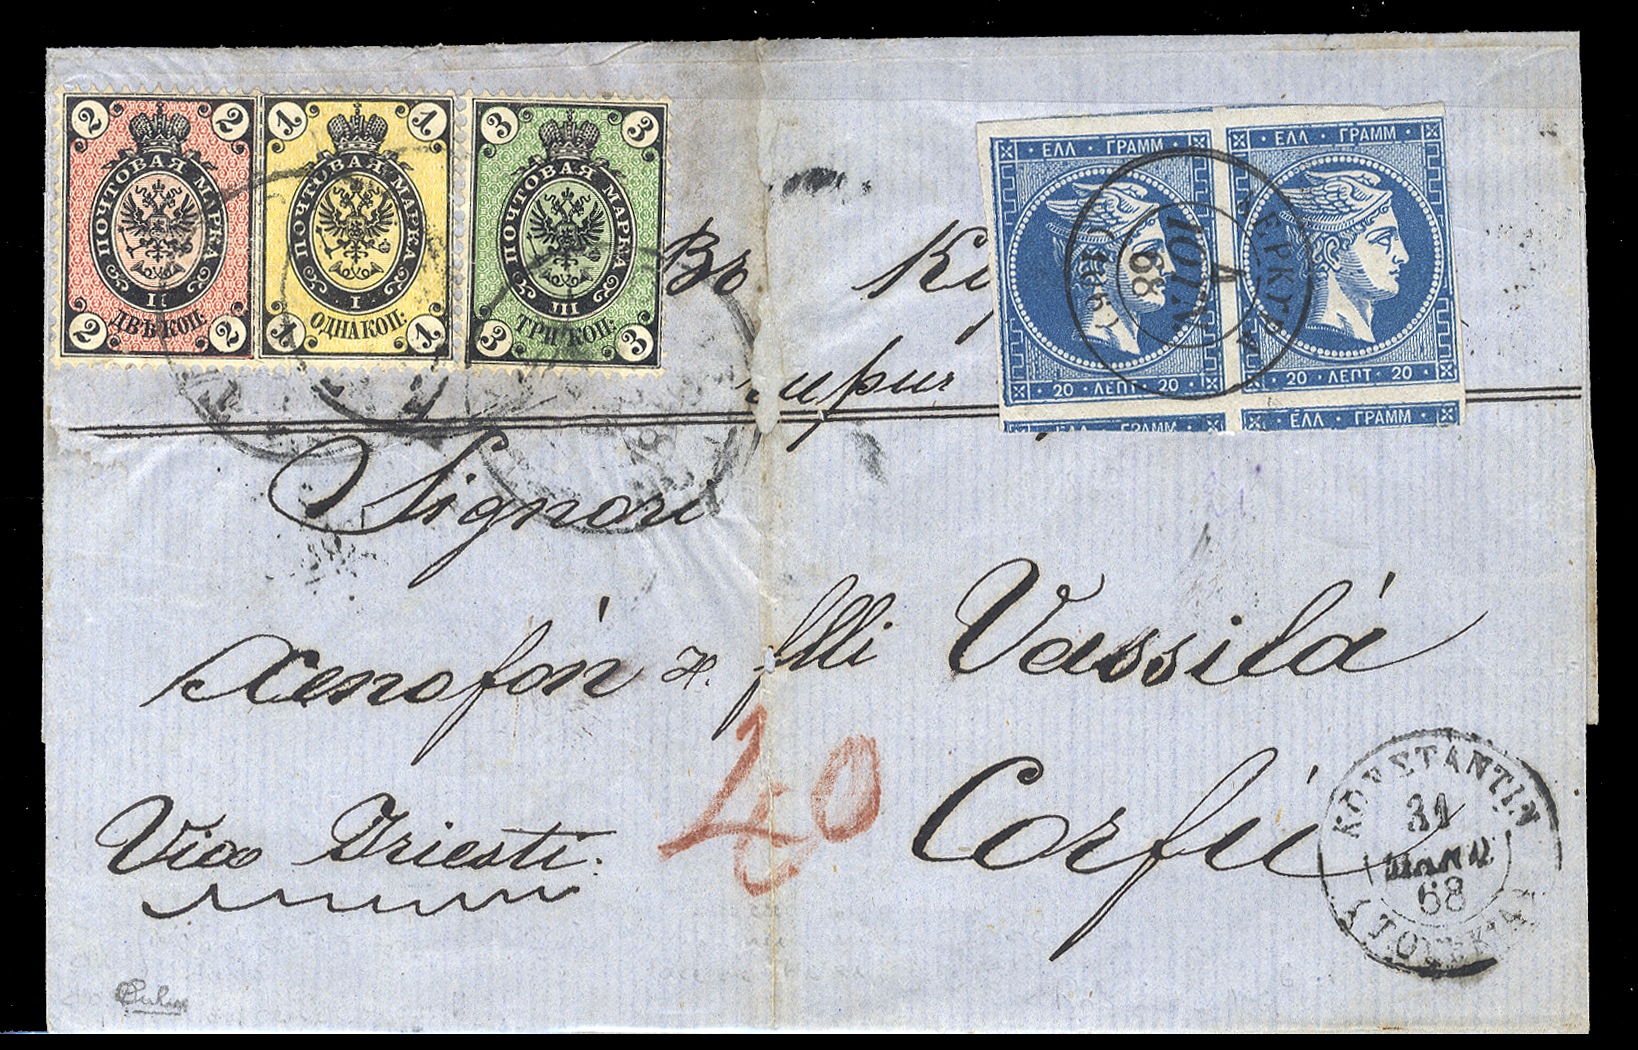 2 2
ПОЧТОВАЯ МАРКА
II
ДВѢ КОП:
2 2
1 1
ПОЧТОВАЯ МАРКА
I
ОДНА КОП:
1 1
3 3
ПОЧТОВАЯ МАРКА
III
ТРИ КОП:
3 3
ΕΛΛ · ΓΡΑΜΜ
20 · ΛΕΠΤ · 20
ΕΛΛ · ΓΡΑΜΜ
20 · ΛΕΠΤ · 20
ΕΛΛ · ΓΡΑΜΜ
ΕΛΛ · ΓΡΑΜΜ
ΚΕΡΚΥΡΑ
4
ΙΟΥΝ.
68
Въ
Signori
Xenofón & flli Vassilá
40
Corfú
Via Triesti.
ΚΩΝΣΤΑΝΤΙΝ
31
68
(ΤΟΥΡΚΙΑ)